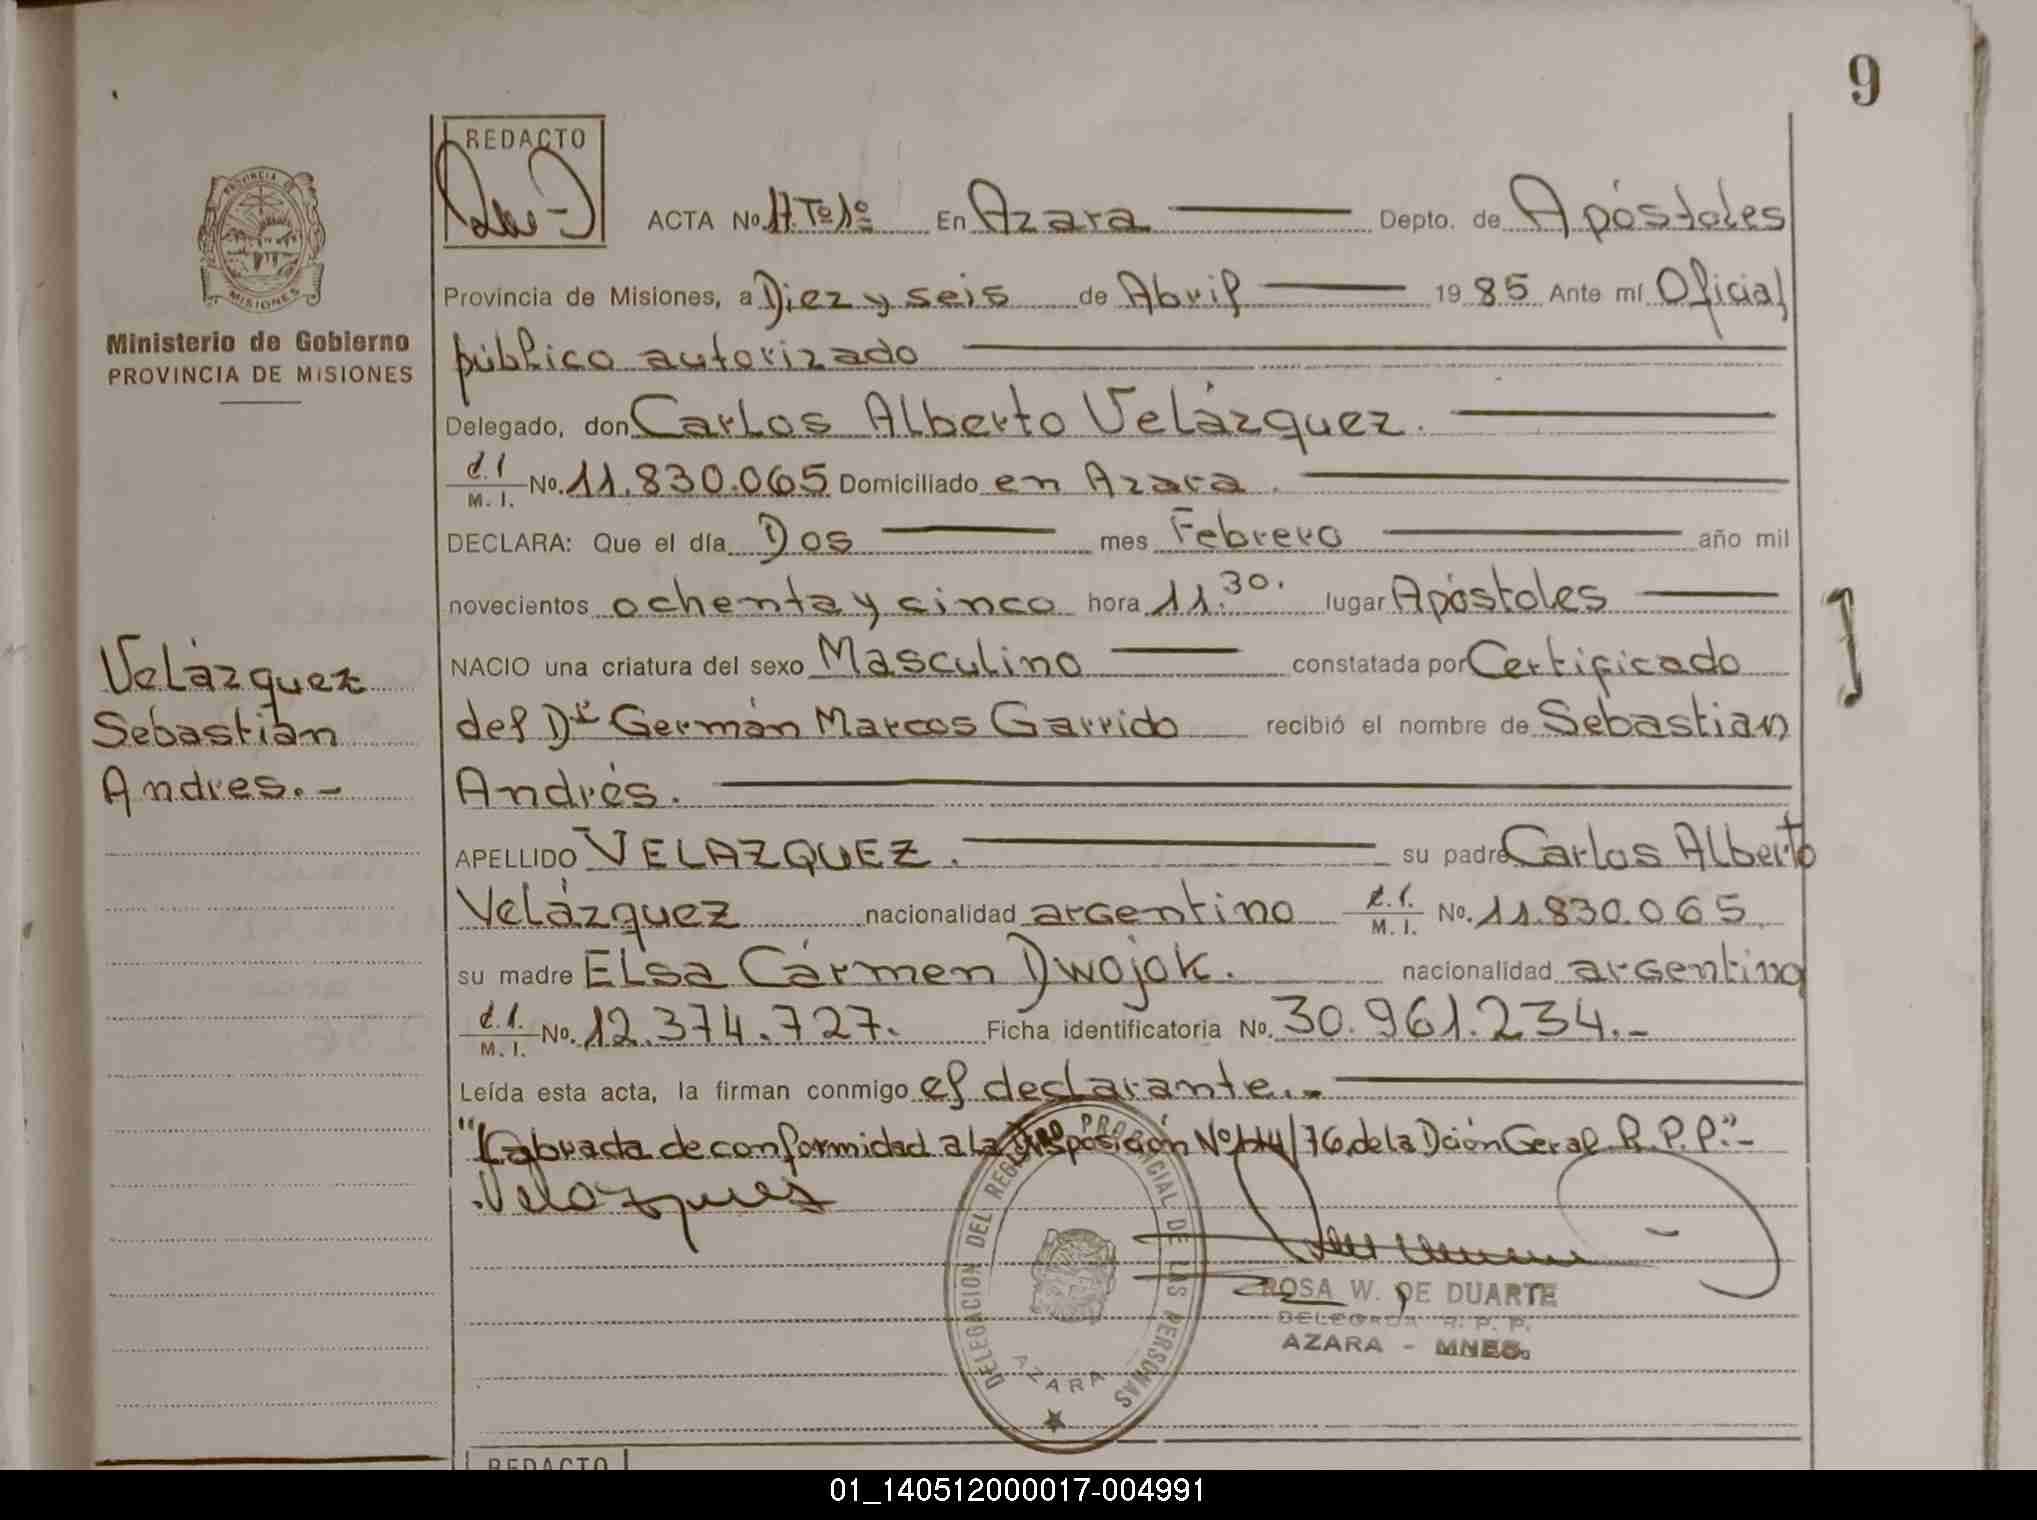 9
REDACTO
PROVINCIA DE
MISIONES
Ministerio de Gobierno
PROVINCIA DE MISIONES
ACTA No. 17. Tº 1º En Azara Depto. de Apóstoles
Provincia de Misiones, a Diez y seis de Abril 1985 Ante mí Oficial
público autorizado
Delegado, don Carlos Alberto Velázquez.
M. I. No. 11.830.065 Domiciliado en Azara.
DECLARA: Que el día Dos mes Febrero año mil
novecientos ochenta y cinco hora 11.30. lugar Apóstoles
NACIO una criatura del sexo Masculino constatada por Certificado
del Dr Germán Marcos Garrido recibió el nombre de Sebastián
Andrés.
Velázquez
Sebastián
Andres.-
APELLIDO VELAZQUEZ. su padre Carlos Alberto
Velázquez nacionalidad argentino M. I. No. 11.830.065
su madre Elsa Cármen Dwojok. nacionalidad argentina
M. I. No. 12.374.727. Ficha identificatoria No. 30.961.234.-
Leída esta acta, la firman conmigo el declarante.-
"Labrada de conformidad a la Disposición Nº /76 de la Dción Geral R. P. P."-
Velazquez
DELEGACION DEL REGISTRO PROVINCIAL DE LAS PERSONAS
AZARA
ROSA W. DE DUARTE
DELEGADA R. P. P.
AZARA - MNES.
REDACTO
01_140512000017-004991